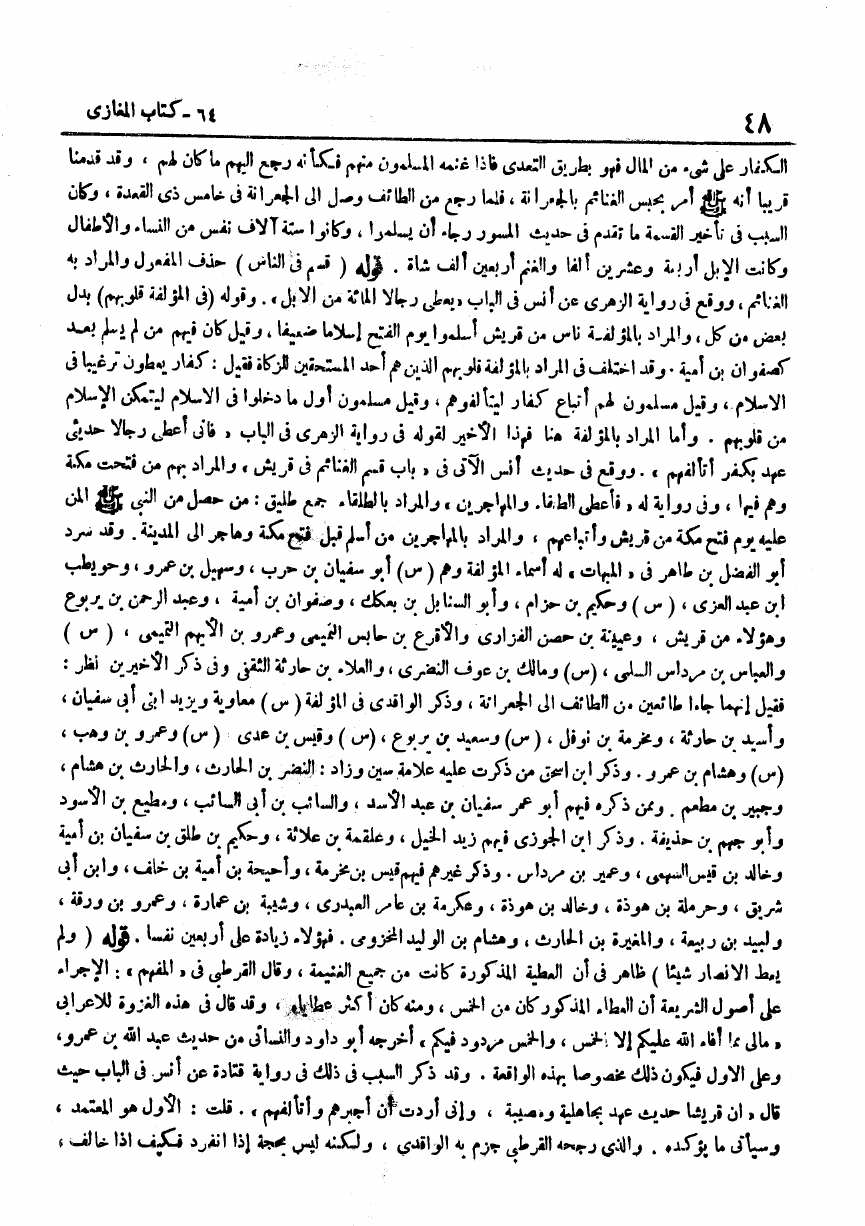 ٤٨
٦٤ - كتاب المغازى
الكفار على شىء من المال فهو بطريق التعدى فاذا غنمه المسلمون منهم فكأنه رجع اليهم ما كان لهم ، وقد قدمنا
قريبا أنه ﷺ أمر بحبس الغنائم بالجعرانة ، فلما رجع من الطائف وصل الى الجعرانة فى خامس ذى القعدة ، وكان
السبب فى تأخير القسمة ما تقدم فى حديث المسور رجاء أن يسلموا ، وكانوا ستة آلاف نفس من النساء والأطفال
وكانت الإبل أربعة وعشرين ألفا والغنم أربعين ألف شاة . قوله ( قسم فى الناس ) حذف المفعول والمراد به
الغنائم ، ووقع فى رواية الزهرى عن أنس فى الباب « يعطى رجالا المائة من الابل » . وقوله ( فى المؤلفة قلوبهم ) بدل
بعض من كل ، والمراد بالمؤلفة ناس من قريش أسلموا يوم الفتح إسلاما ضعيفا ، وقيل كان فيهم من لم يسلم بعد
كصفوان بن أمية . وقد اختلف فى المراد بالمؤلفة قلوبهم الذين هم أحد المستحقين للزكاة فقيل : كفار يعطون ترغيبا فى
الاسلام ، وقيل مسلمون لهم أتباع كفار ليتألفوهم ، وقيل مسلمون أول ما دخلوا فى الاسلام ليتمكن الإسلام
من قلوبهم . وأما المراد بالمؤلفة هنا فهذا الأخير لقوله فى رواية الزهرى فى الباب « فانى أعطى رجالا حديثى
عهد بكفر أتألفهم » . ووقع فى حديث أنس الآتى فى « باب قسم الغنائم فى قريش » والمراد بهم من فتحت مكة
وهم فيها ، وفى رواية له « فأعطى الطلقاء والمهاجرين » والمراد بالطلقاء جمع طليق : من حصل من النبى ﷺ المن
عليه يوم فتح مكة من قريش وأتباعهم ، والمراد بالمهاجرين من أسلم قبل فتح مكة وهاجر الى المدينة . وقد سرد
أبو الفضل بن طاهر فى « المبهمات » له أسماء المؤلفة وهم ( س ) أبو سفيان بن حرب ، وسهيل بن عمرو ، وحويطب
ابن عبد العزى ، ( س ) وحكيم بن حزام ، وأبو السنابل بن بعكك ، وصفوان بن أمية ، وعبد الرحمن بن يربوع
وهؤلاء من قريش ، وعيينة بن حصن الفزارى والأقرع بن حابس التميمى وعمرو بن الأيهم التميمى ، ( س )
والعباس بن مرداس السلمى ، ( س ) ومالك بن عوف النضرى ، والعلاء بن حارثة الثقفى وفى ذكر الأخيرين نظر :
فقيل إنهما جاءا طائعين من الطائف الى الجعرانة ، وذكر الواقدى فى المؤلفة ( س ) معاوية ويزيد ابنى أبى سفيان ،
وأسيد بن حارثة ، ومخرمة بن نوفل ، ( س ) وسعيد بن يربوع ، ( س ) وقيس بن عدى ( س ) وعمرو بن وهب ،
( س ) وهشام بن عمرو . وذكر ابن اسحق من ذكرت عليه علامة سين وزاد : النضر بن الحارث ، والحارث بن هشام ،
وجبير بن مطعم . وممن ذكره فيهم أبو عمر سفيان بن عبد الأسد ، والسائب بن أبى السائب ، ومطيع بن الأسود
وأبو جهم بن حذيفة . وذكر ابن الجوزى فيهم زيد الخيل ، وعلقمة بن علاثة ، وحكيم بن طلق بن سفيان بن أمية
وخالد بن قيس السهمى ، وعمير بن مرداس . وذكر غيرهم فيهم قيس بن مخرمة ، وأحيحة بن أمية بن خلف ، وابن أبى
شريق ، وحرملة بن هوذة ، وخالد بن هوذة ، وعكرمة بن عامر العبدرى ، وشيبة بن عمارة ، وعمرو بن ورقة ،
ولبيد بن ربيعة ، والمغيرة بن الحارث ، وهشام بن الوليد المخزومى . فهؤلاء زيادة على أربعين نفسا . قوله ( ولم
يعط الانصار شيئا ) ظاهر فى أن العطية المذكورة كانت من جميع الغنيمة ، وقال القرطى فى « المفهم » : الإجراء
على أصول الشريعة أن العطاء المذكور كان من الخمس ، ومنه كان أكثر عطاياه ، وقد قال فى هذه الغزوة للاعرابى
« مالى مما أفاء الله عليكم إلا الخمس ، والخمس مردود فيكم » أخرجه أبو داود والنسائى من حديث عبد الله بن عمرو ،
وعلى الاول فيكون ذلك مخصوصا بهذه الواقعة . وقد ذكر السبب فى ذلك فى رواية قتادة عن أنس فى الباب حيث
قال « ان قريشا حديث عهد بجاهلية ومصيبة ، وإنى أردت أن أجبرهم وأتألفهم » . قلت : الأول هو المعتمد ،
وسيأتى ما يؤكده . والذى رجحه القرطى جزم به الواقدى ، ولكنه ليس بحجة إذا انفرد فكيف اذا خالف ،